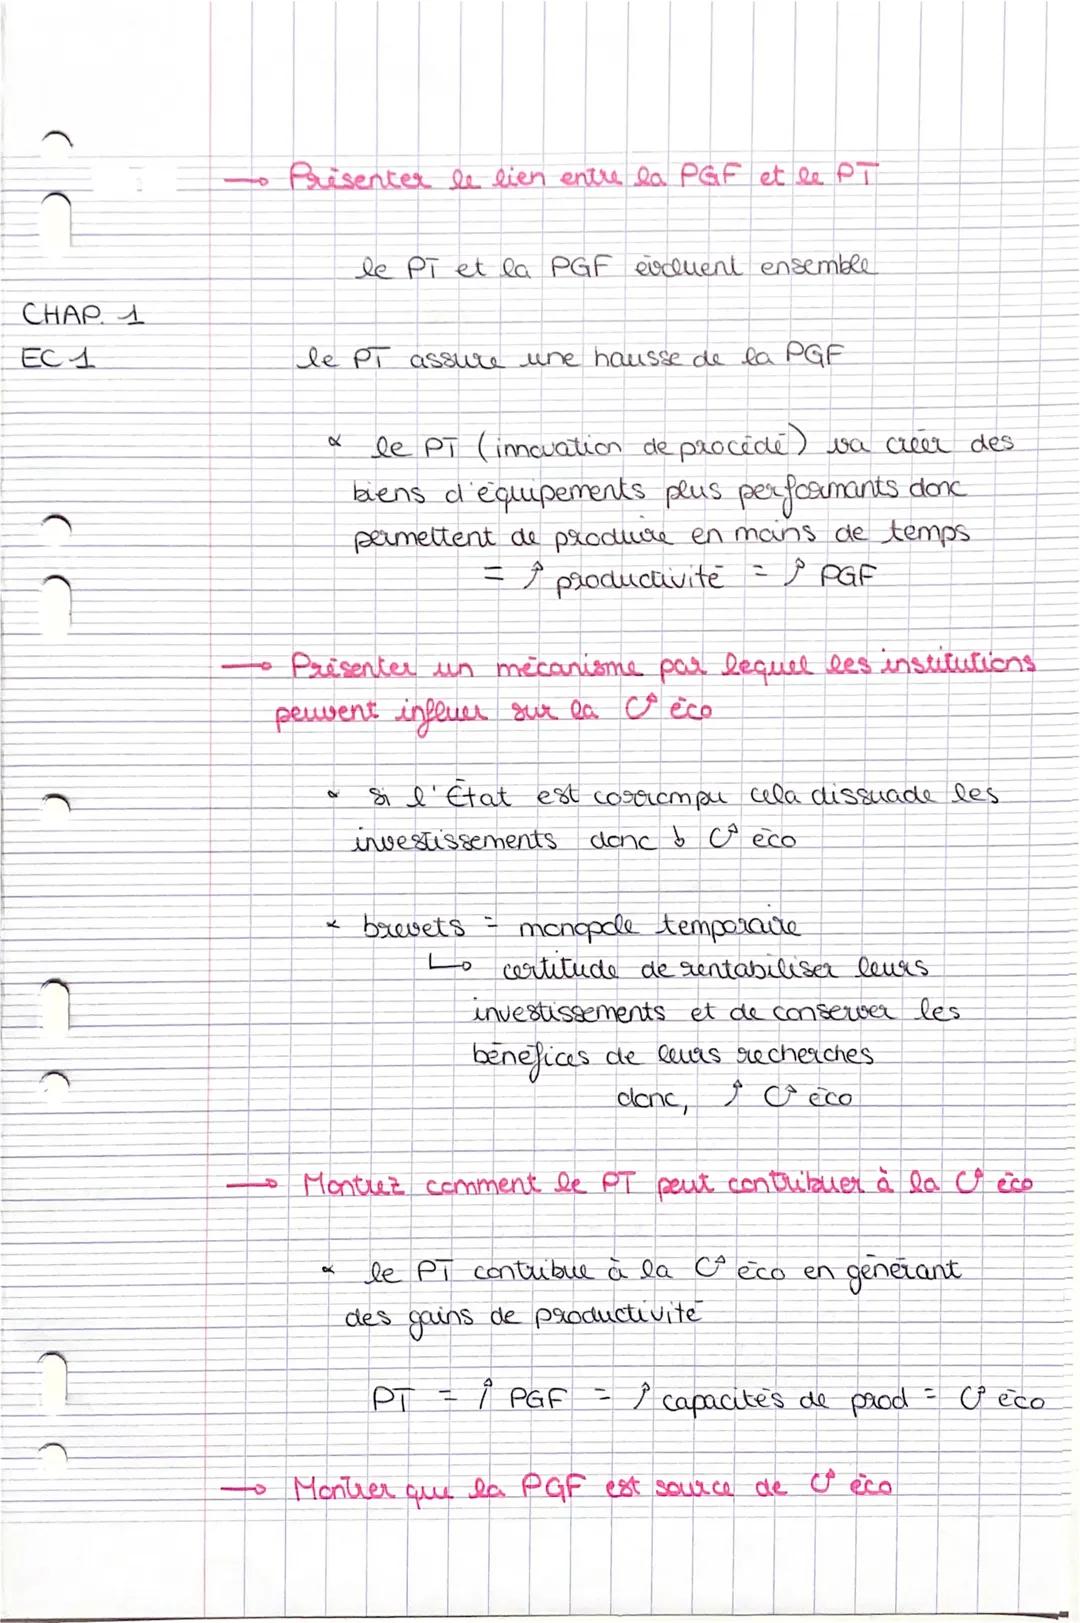 → Présenter le lien entre la PGF et le PT
le PT et la PGF évoluent ensemble
CHAP. 1
EC 1
le PT assure une hausse de la PGF
* le PT (innovation de procédé) va créer des
biens d'équipements plus performants donc
permettent de produire en moins de temps
= ↑ productivité = ↑ PGF
→ Présenter un mécanisme par lequel les institutions
peuvent influer sur la C° éco
* si l'État est corrompu cela dissuade les
investissements donc ↓ C° éco
* brevets = monopole temporaire
↳ certitude de rentabiliser leurs
investissements et de conserver les
bénéfices de leurs recherches
donc, ↑ C° éco
→ Montrez comment le PT peut contribuer à la C° éco
* le PT contribue à la C° éco en générant
des gains de productivité
PT = ↑ PGF = ↑ capacités de prod = C° éco
→ Montrer que la PGF est source de C° éco